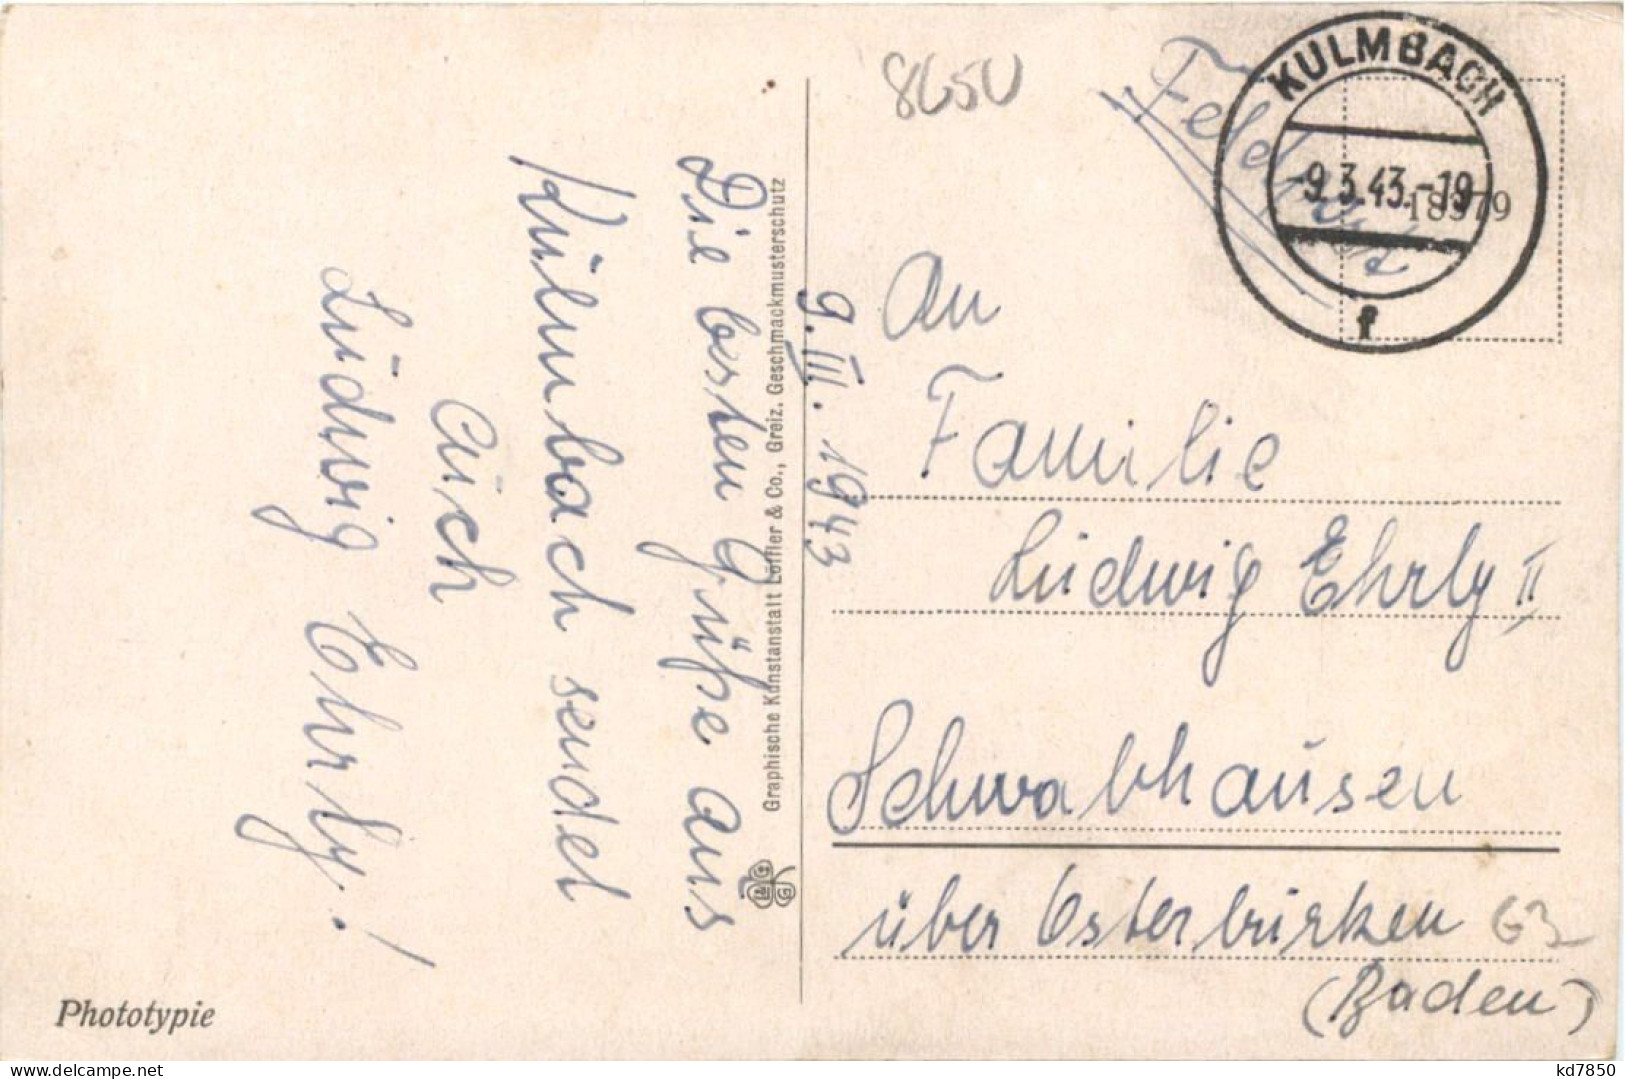 8650
Feldpost
KULMBACH
-9.3.43.-19
f
18379
9. III. 1943
An
Familie
Ludwig Ehrly II
Schwabhausen
über Osterburken
(Baden)
63
Die besten Grüße aus
Kulmbach sendet
Euch
Ludwig Ehrly!
Graphische Kunstanstalt Löffler & Co., Greiz. Geschmackmusterschutz
Phototypie
kd7850